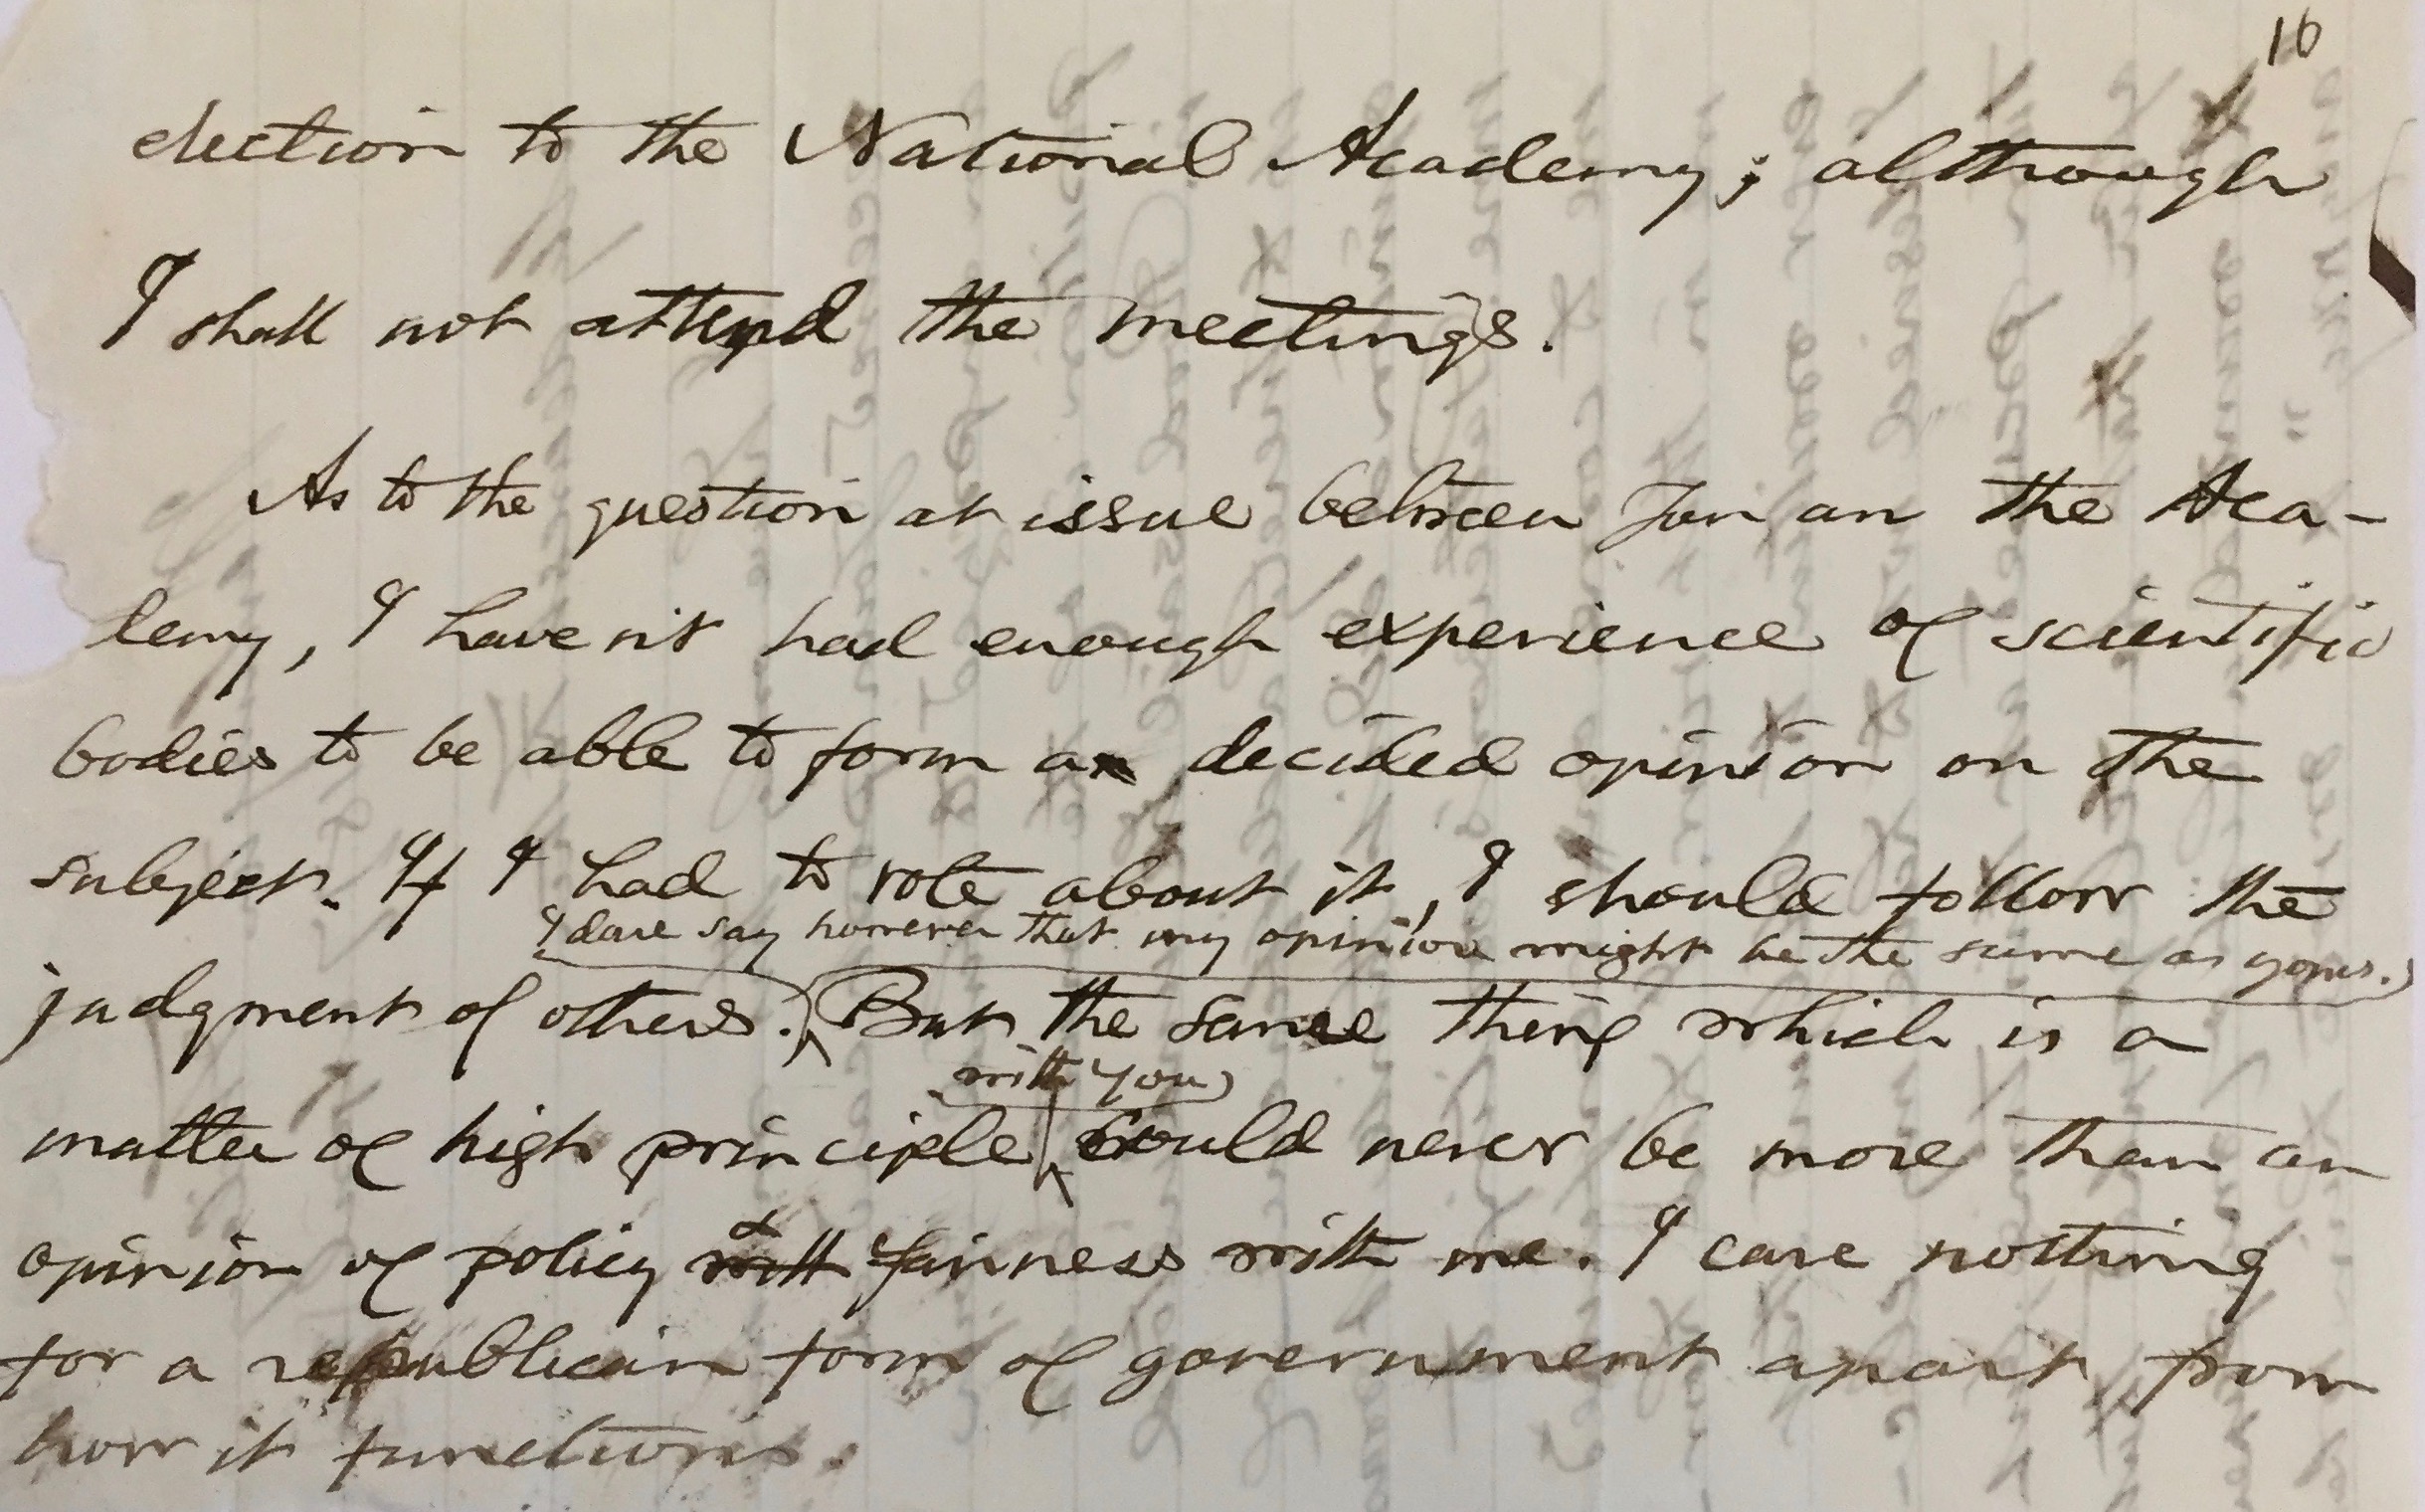 16
election to the National Academy; although
I shall not attend the meetings.
As to the question at issue between you an the Aca-
demy, I haven't had enough experience of scientific
bodies to be able to form a decided opinion on the
subject. If I had to vote about it, I should follow the
I dare say however that my opinion might be the same as yours.
judgment of others. But the same thing which is a
with you
matter of high principle would never be more than an
&
opinion of policy with fairness with me. I care nothing
for a republican form of government apart from
how it functions.